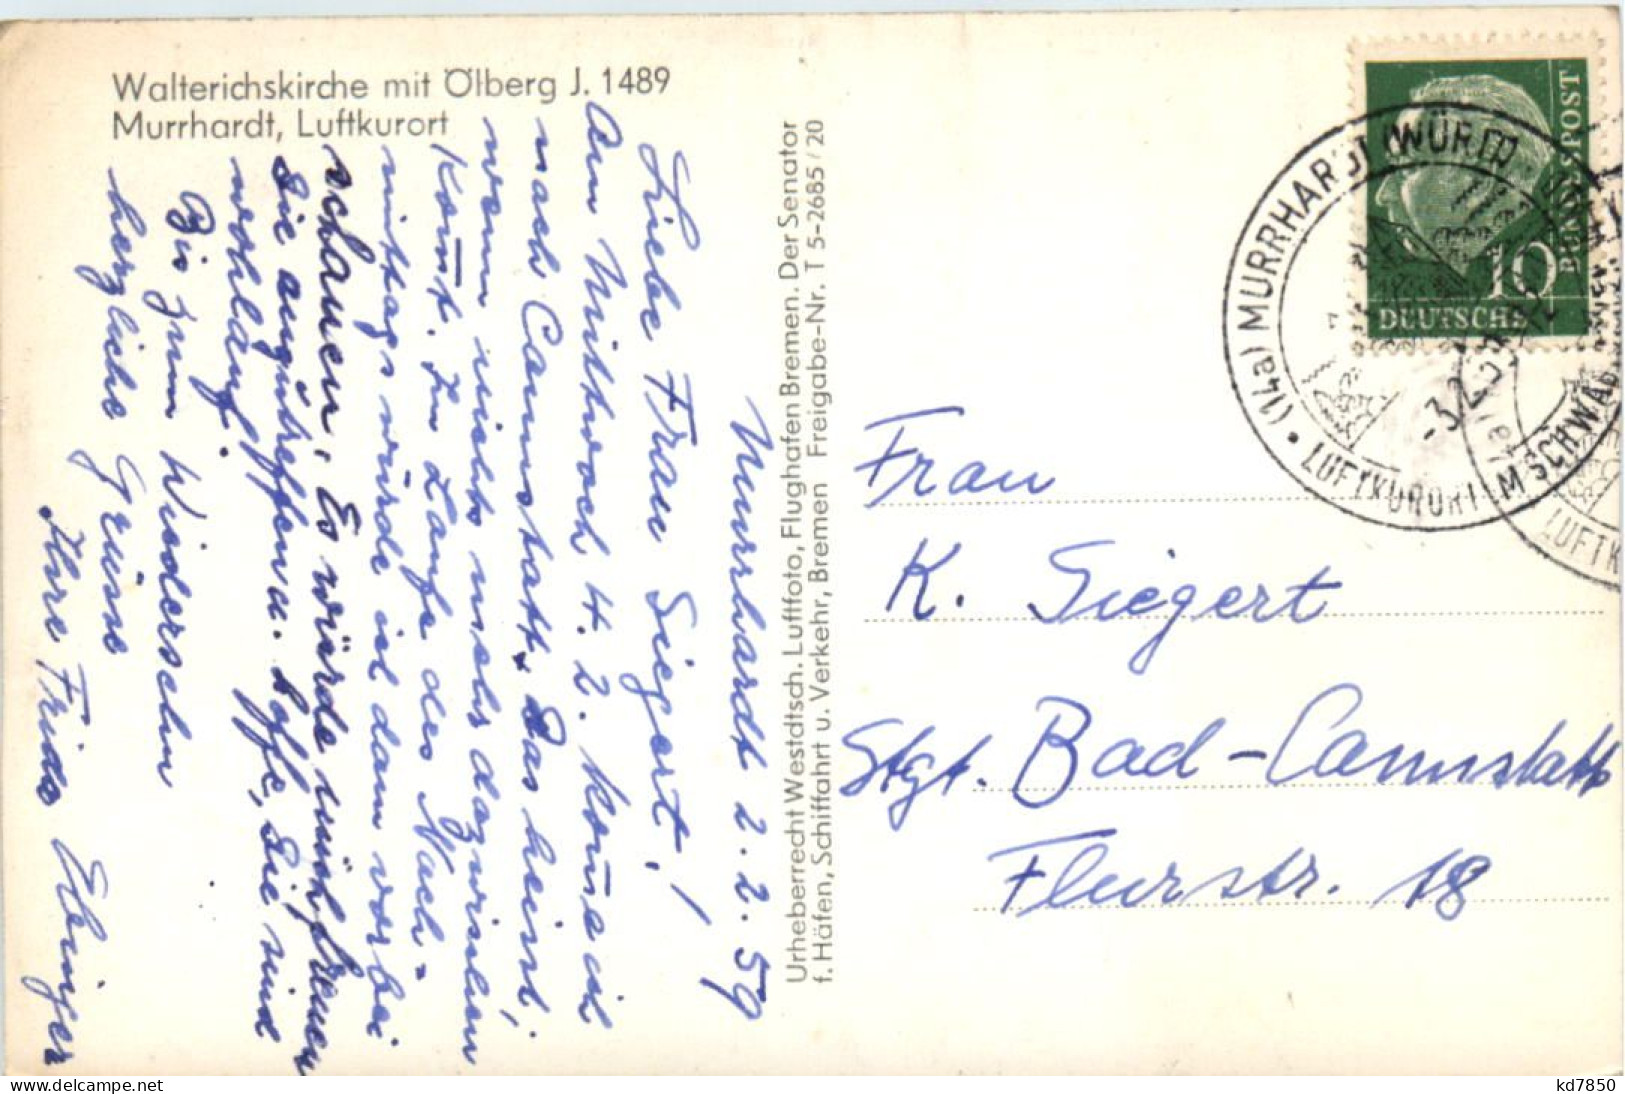 Walterichskirche mit Ölberg J. 1489
Murrhardt, Luftkurort
Murrhardt 2.2.59
Liebe Frau Siegert!
Am Mittwoch 4.2. kom̄e ich
nach Cannstatt. Das heisst,
wenn nichts mehr dazwischen
kom̄t. Im Laufe des Nach-
mittags würde ich dann vorbei
schauen. Es würde mich freuen
Sie anzutreffen u. hoffe, Sie sind
wohlauf.
Bis zum Wiedersehn
herzliche Grüsse
Ihre Frida Ebinger
Urheberrecht Westdtsch. Luftfoto, Flughafen Bremen. Der Senator
f. Häfen, Schiffahrt u. Verkehr, Bremen Freigabe-Nr. T 5-2685/20
DEUTSCHE
BUNDESPOST
10
(14a) MURRHARDT (WÜRTT)
LUFTKURORT IM SCHWÄB
-3.2.59
LUFTK
Frau
K. Siegert
Stgt. Bad-Cannstatt
Flurstr. 18
kd7850 via www.delcampe.net
kd7850